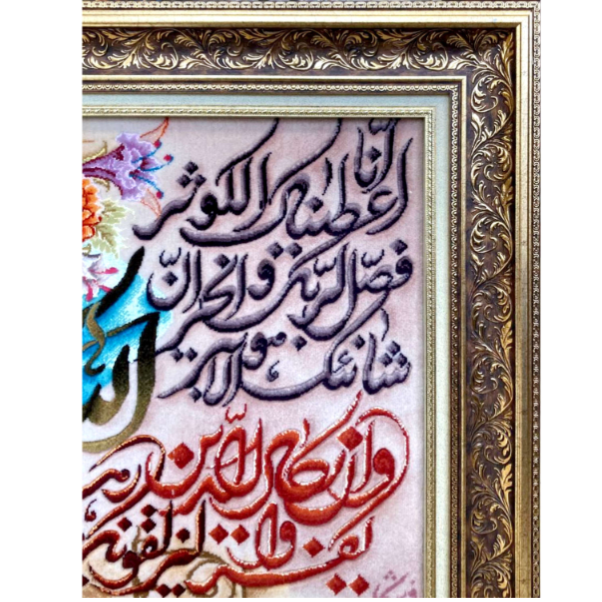 انّا
اعطیناک الکوثر
فصلّ لربّک وانحر انّ
شانئک هو الابتر
وان یکاد الّذین
کفروا لیزلقونک